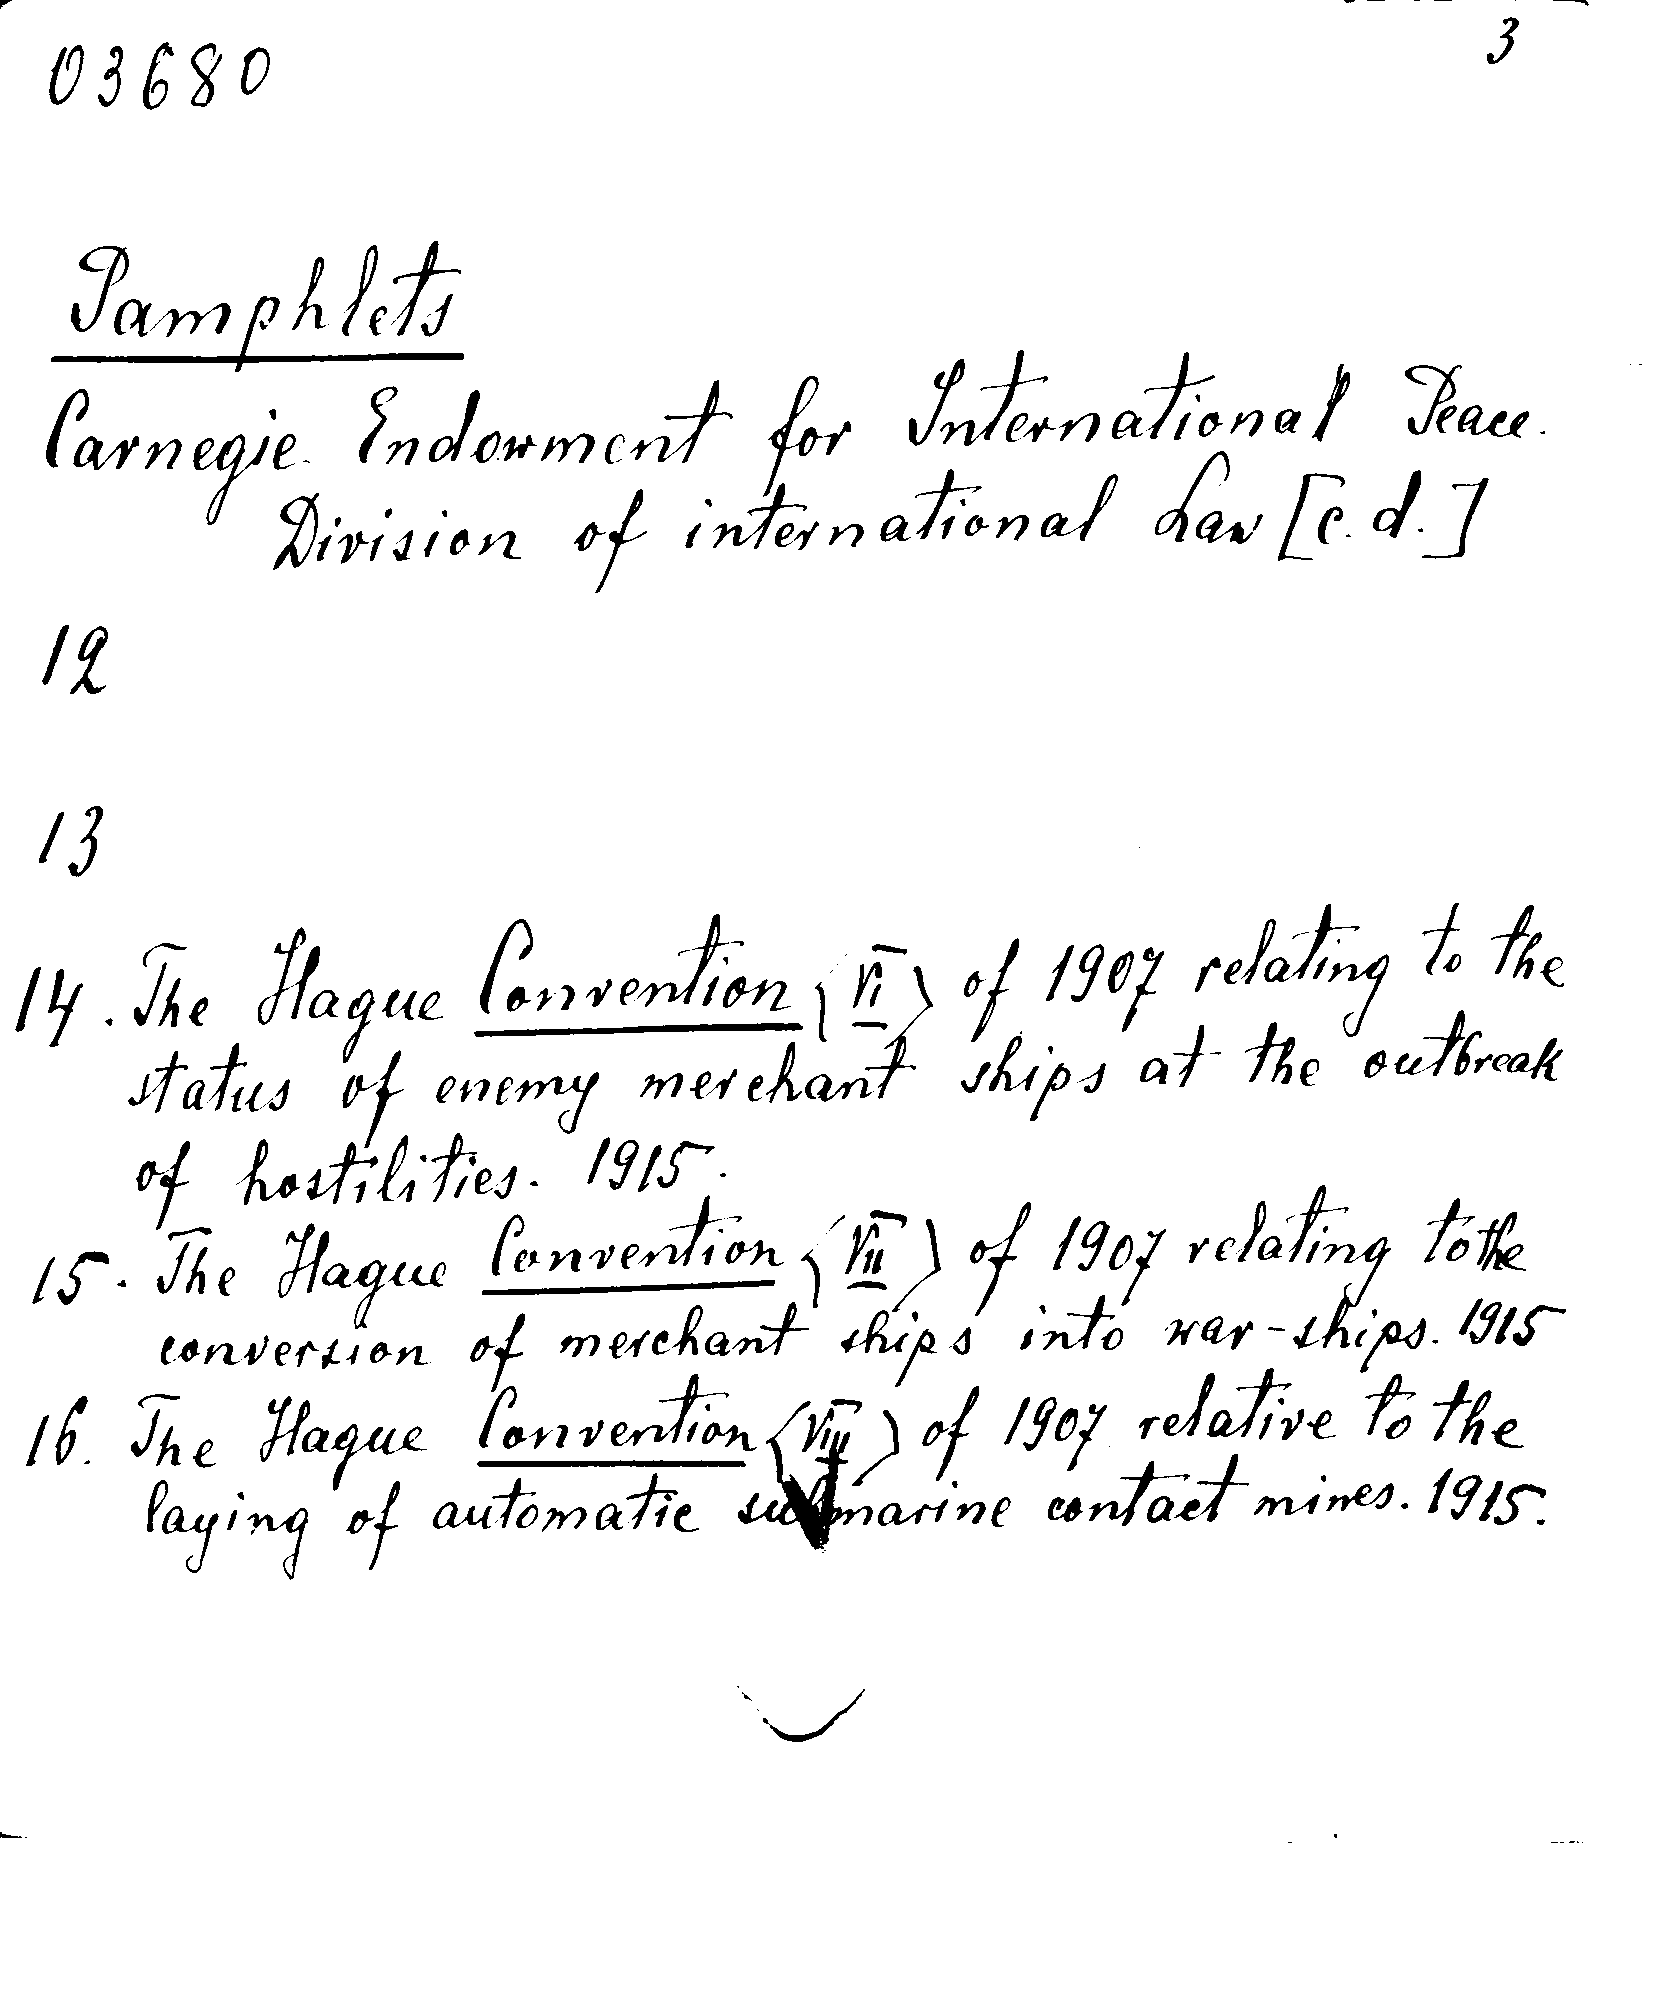 03680
3
Pamphlets
Carnegie Endowment for International Peace.
Division of international Law [c.d.]
12
13
14. The Hague Convention (VI) of 1907 relating to the
status of enemy merchant ships at the outbreak
of hostilities. 1915.
15. The Hague Convention (VII) of 1907 relating to the
conversion of merchant ships into war-ships. 1915
16. The Hague Convention (VIII) of 1907 relative to the
laying of automatic submarine contact mines. 1915.